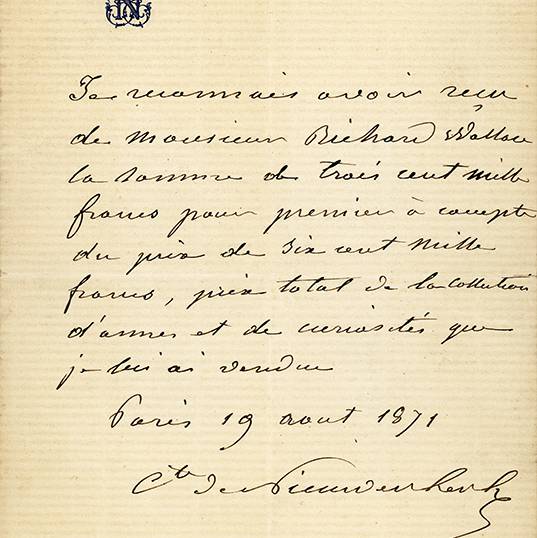 N
Je reconnais avoir reçu
de Monsieur Richard Wallace
la somme de trois cent mille
francs pour premier à compte
du prix de six cent mille
francs, prix total de la collection
d'armes et de curiosités que
je lui ai vendue
Paris 19 aout 1871
Cte de Nieuwerkerke